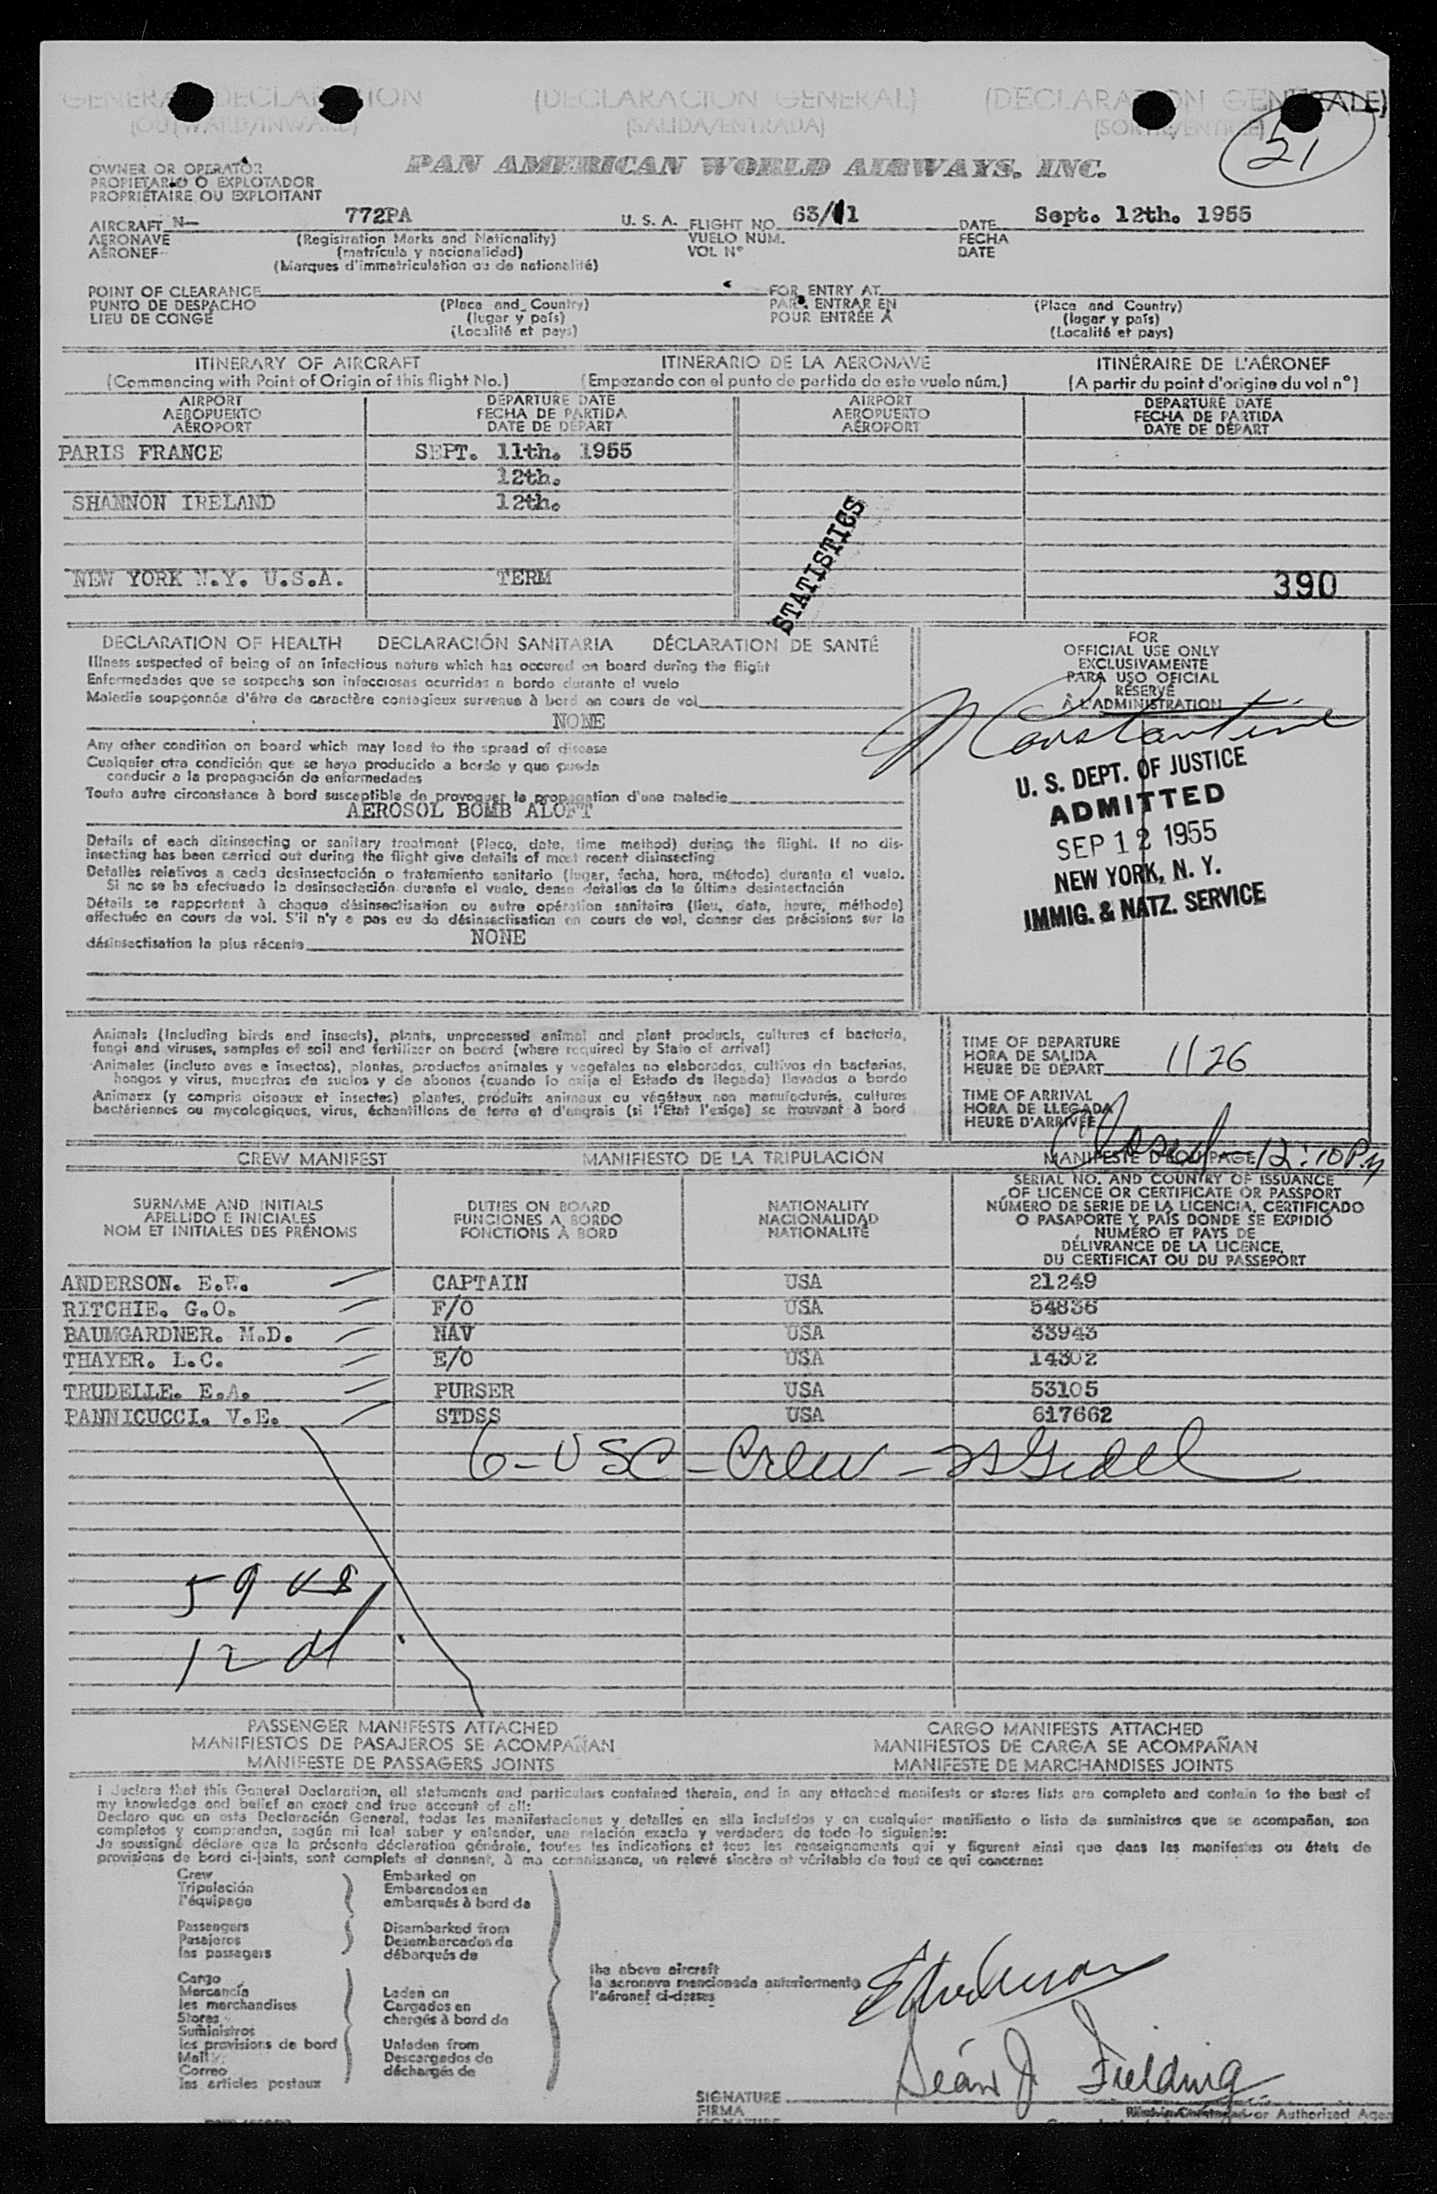 GENERAL DECLARATION (DECLARACION GENERAL) (DECLARATION GENERALE)
(OUTWARD/INWARD) (SALIDA/ENTRADA) (SORTIE/ENTREE)
21
OWNER OR OPERATOR
PROPIETARIO O EXPLOTADOR
PROPRIÉTAIRE OU EXPLOITANT
PAN AMERICAN WORLD AIRWAYS, INC.
AIRCRAFT N- 772PA U. S. A. FLIGHT NO. 63/11 DATE Sept. 12th. 1955
AERONAVE (Registration Marks and Nationality) VUELO NÚM. FECHA
AÉRONEF (matrícula y nacionalidad) VOL Nº DATE
(Marques d'immatriculation ou de nationalité)
POINT OF CLEARANCE FOR ENTRY AT
PUNTO DE DESPACHO (Place and Country) PARA ENTRAR EN (Place and Country)
LIEU DE CONGÉ (lugar y país) POUR ENTRÉE À (lugar y país)
(Localité et pays) (Localité et pays)
ITINERARY OF AIRCRAFT ITINERARIO DE LA AERONAVE ITINÉRAIRE DE L'AÉRONEF
(Commencing with Point of Origin of this flight No.) (Empezando con el punto de partida de este vuelo núm.) (A partir du point d'origine du vol nº)
AIRPORT DEPARTURE DATE AIRPORT DEPARTURE DATE
AEROPUERTO FECHA DE PARTIDA AEROPUERTO FECHA DE PARTIDA
AÉROPORT DATE DE DÉPART AÉROPORT DATE DE DÉPART
PARIS FRANCE SEPT. 11th. 1955
12th.
SHANNON IRELAND 12th.
STATISTICS
NEW YORK N.Y. U.S.A. TERM 390
DECLARATION OF HEALTH DECLARACIÓN SANITARIA DÉCLARATION DE SANTÉ
Illness suspected of being of an infectious nature which has occured on board during the flight
Enfermedades que se sospecha son infecciosas ocurridas a bordo durante el vuelo
Maladie soupçonnée d'être de caractère contagieux survenue à bord en cours de vol
NONE
Any other condition on board which may lead to the spread of disease
Cualquier otra condición que se haya producido a bordo y que pueda
conducir a la propagación de enfermedades
Toute autre circonstance à bord susceptible de provoquer la propagation d'une maladie
AEROSOL BOMB ALOFT
Details of each disinsecting or sanitary treatment (Place, date, time method) during the flight. If no dis-
insecting has been carried out during the flight give details of most recent disinsecting
Detalles relativos a cada desinsectación o tratamiento sanitario (lugar, fecha, hora, método) durante el vuelo.
Si no se ha efectuado la desinsectación durante el vuelo, dense detalles de la última desinsectación
Détails se rapportant à chaque désinsectisation ou autre opération sanitaire (lieu, date, heure, méthode)
effectuée en cours de vol. S'il n'y a pas eu de désinsectisation en cours de vol, donner des précisions sur la
désinsectisation la plus récente NONE
FOR
OFFICIAL USE ONLY
EXCLUSIVAMENTE
PARA USO OFICIAL
RÉSERVÉ
À L'ADMINISTRATION
Constantine
U. S. DEPT. OF JUSTICE
ADMITTED
SEP 12 1955
NEW YORK, N. Y.
IMMIG. & NATZ. SERVICE
Animals (Including birds and insects), plants, unprocessed animal and plant products, cultures of bacteria,
fungi and viruses, samples of soil and fertilizer on board (where required by State of arrival)
Animales (incluso aves e insectos), plantas, productos animales y vegetales no elaborados, cultivos de bacterias,
hongos y virus, muestras de suelos y de abonos (cuando lo exija el Estado de llegada) llevados a bordo
Animaux (y compris oiseaux et insectes) plantes, produits animaux ou végétaux non manufacturés, cultures
bactériennes ou mycologiques, virus, échantillons de terre et d'engrais (si l'Etat l'exige) se trouvant à bord
TIME OF DEPARTURE
HORA DE SALIDA
HEURE DE DÉPART 1126
TIME OF ARRIVAL
HORA DE LLEGADA
HEURE D'ARRIVÉE
Closed 12:10 PM
CREW MANIFEST MANIFIESTO DE LA TRIPULACIÓN MANIFESTE D'ÉQUIPAGE
SURNAME AND INITIALS DUTIES ON BOARD NATIONALITY SERIAL NO. AND COUNTRY OF ISSUANCE
APELLIDO E INICIALES FUNCIONES A BORDO NACIONALIDAD OF LICENCE OR CERTIFICATE OR PASSPORT
NOM ET INITIALES DES PRÉNOMS FONCTIONS À BORD NATIONALITÉ NÚMERO DE SERIE DE LA LICENCIA, CERTIFICADO
O PASAPORTE Y PAÍS DONDE SE EXPIDIÓ
NUMÉRO ET PAYS DE
DÉLIVRANCE DE LA LICENCE,
DU CERTIFICAT OU DU PASSEPORT
ANDERSON. E.W. CAPTAIN USA 21249
RITCHIE. G.O. F/O USA 54836
BAUMGARDNER. M.D. NAV USA 33943
THAYER. L.C. E/O USA 14302
TRUDELLE. E.A. PURSER USA 53105
PANNICUCCI. V.E. STDSS USA 617662
6 - USC - Crew -
59 US
12 al
PASSENGER MANIFESTS ATTACHED CARGO MANIFESTS ATTACHED
MANIFIESTOS DE PASAJEROS SE ACOMPAÑAN MANIFIESTOS DE CARGA SE ACOMPAÑAN
MANIFESTE DE PASSAGERS JOINTS MANIFESTE DE MARCHANDISES JOINTS
I declare that this General Declaration, all statements and particulars contained therein, and in any attached manifests or stores lists are complete and contain to the best of
my knowledge and belief an exact and true account of all:
Declaro que en esta Declaración General, todas las manifestaciones y detalles en ella incluidos y en cualquier manifiesto o lista de suministros que se acompañan, son
completos y comprenden, según mi leal saber y entender, una relación exacta y verdadera de todo lo siguiente:
Je soussigné déclare que la présente déclaration générale, toutes les indications et tous les renseignements qui y figurent ainsi que dans les manifestes ou états de
provisions de bord ci-joints, sont complets et donnent, à ma connaissance, un relevé sincère et véritable de tout ce qui concerne:
Crew Embarked on
Tripulación Embarcados en
l'équipage embarqués à bord de
Passengers Disembarked from
Pasajeros Desembarcados de
les passagers débarqués de
the above aircraft
la aeronave mencionada anteriormente
l'aéronef ci-dessus
Cargo
Mercancía Laden on
les marchandises Cargados en
Stores chargés à bord de
Suministros
les provisions de bord Unladen from
Mail Descargados de
Correo déchargés de
les articles postaux
EWAnderson
Seán J Fielding
SIGNATURE
FIRMA or Authorized Agent
SIGNATURE